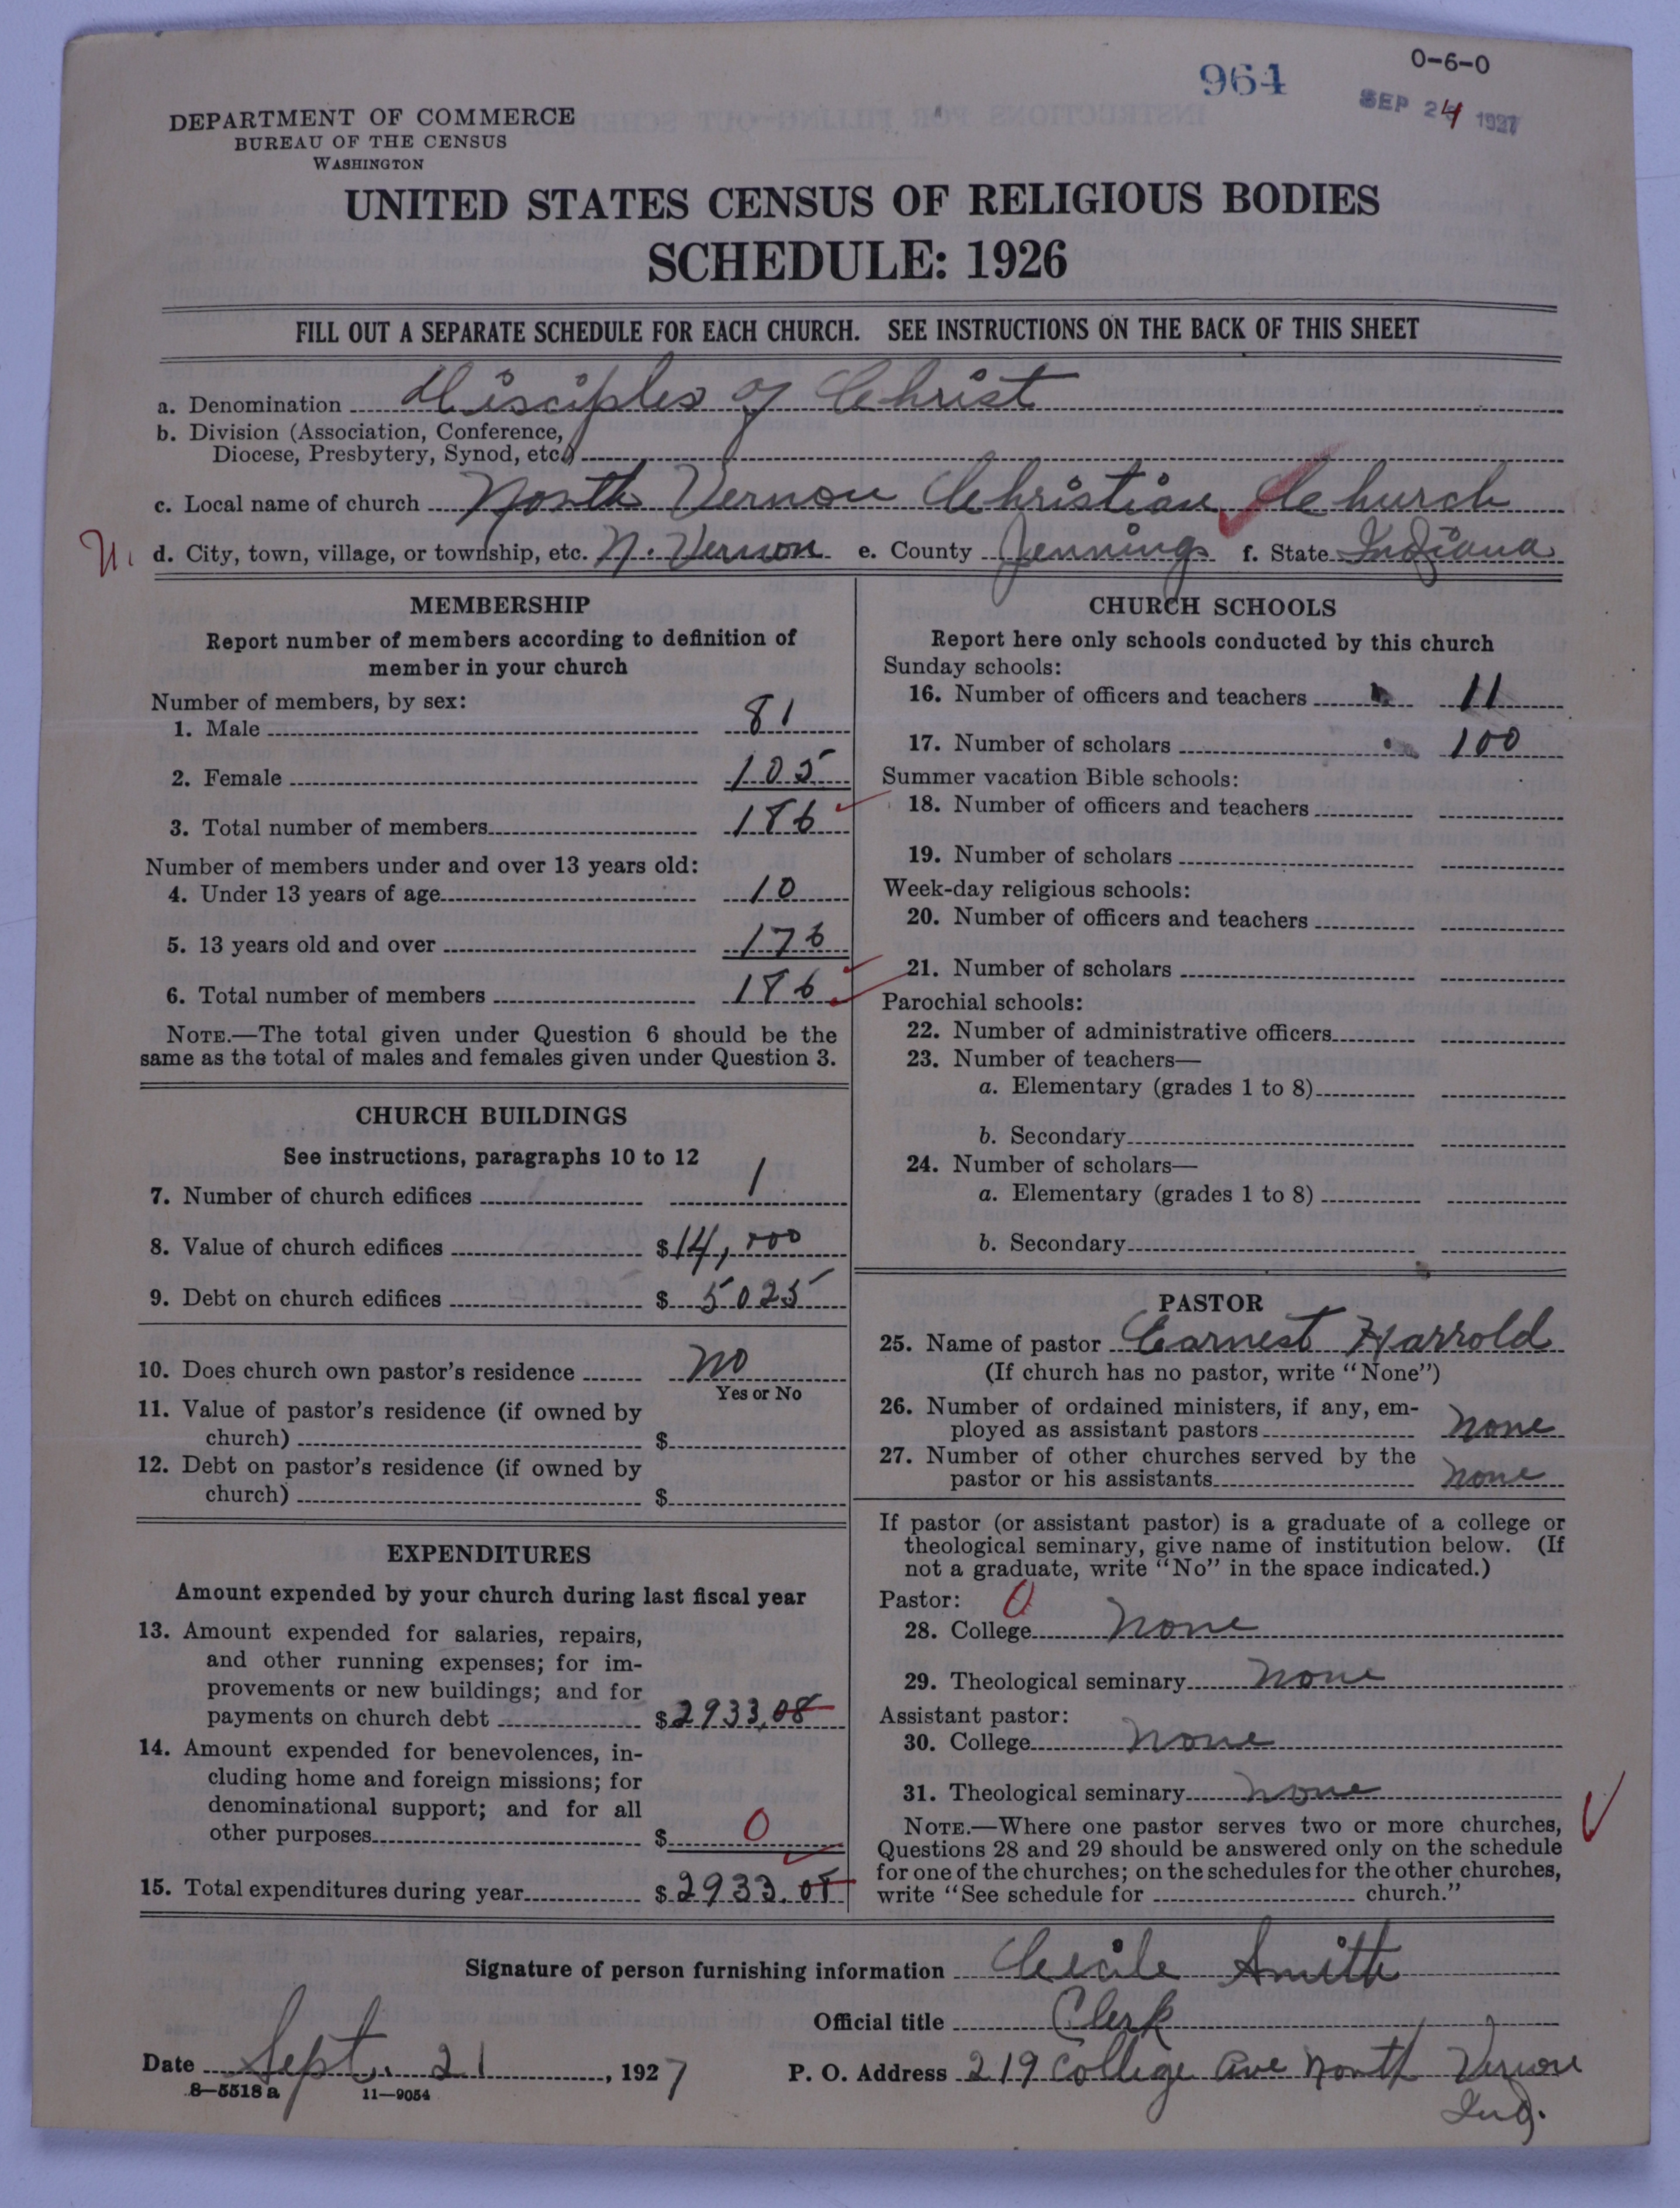 964
0-6-0
SEP 24 1927
DEPARTMENT OF COMMERCE
BUREAU OF THE CENSUS
WASHINGTON
UNITED STATES CENSUS OF RELIGIOUS BODIES
SCHEDULE: 1926
FILL OUT A SEPARATE SCHEDULE FOR EACH CHURCH. SEE INSTRUCTIONS ON THE BACK OF THIS SHEET
a. Denomination Disciples of Christ
b. Division (Association, Conference,
Diocese, Presbytery, Synod, etc.)
c. Local name of church North Vernon Christian Church
d. City, town, village, or township, etc. N. Vernon e. County Jennings f. State Indiana
MEMBERSHIP
Report number of members according to definition of
member in your church
Number of members, by sex:
1. Male 81
2. Female 105
3. Total number of members 186
Number of members under and over 13 years old:
4. Under 13 years of age 10
5. 13 years old and over 176
6. Total number of members 186
NOTE.—The total given under Question 6 should be the
same as the total of males and females given under Question 3.
CHURCH BUILDINGS
See instructions, paragraphs 10 to 12
7. Number of church edifices 1
8. Value of church edifices $14,000
9. Debt on church edifices $ 5025
10. Does church own pastor's residence no
Yes or No
11. Value of pastor's residence (if owned by
church) $
12. Debt on pastor's residence (if owned by
church) $
EXPENDITURES
Amount expended by your church during last fiscal year
13. Amount expended for salaries, repairs,
and other running expenses; for im-
provements or new buildings; and for
payments on church debt $2933.08
14. Amount expended for benevolences, in-
cluding home and foreign missions; for
denominational support; and for all
other purposes $ 0
15. Total expenditures during year $2933.08
CHURCH SCHOOLS
Report here only schools conducted by this church
Sunday schools:
16. Number of officers and teachers 11
17. Number of scholars 100
Summer vacation Bible schools:
18. Number of officers and teachers
19. Number of scholars
Week-day religious schools:
20. Number of officers and teachers
21. Number of scholars
Parochial schools:
22. Number of administrative officers
23. Number of teachers—
a. Elementary (grades 1 to 8)
b. Secondary
24. Number of scholars—
a. Elementary (grades 1 to 8)
b. Secondary
PASTOR
25. Name of pastor Earnest Harrold
(If church has no pastor, write "None")
26. Number of ordained ministers, if any, em-
ployed as assistant pastors none
27. Number of other churches served by the
pastor or his assistants none
If pastor (or assistant pastor) is a graduate of a college or
theological seminary, give name of institution below. (If
not a graduate, write "No" in the space indicated.)
Pastor: 0
28. College none
29. Theological seminary none
Assistant pastor:
30. College none
31. Theological seminary none
NOTE.—Where one pastor serves two or more churches,
Questions 28 and 29 should be answered only on the schedule
for one of the churches; on the schedules for the other churches,
write "See schedule for church."
Signature of person furnishing information Cecile Smith
Official title Clerk
Date Sept. 21, 1927 P. O. Address 219 College Ave North Vernon
Ind.
8—5518 a 11—9054